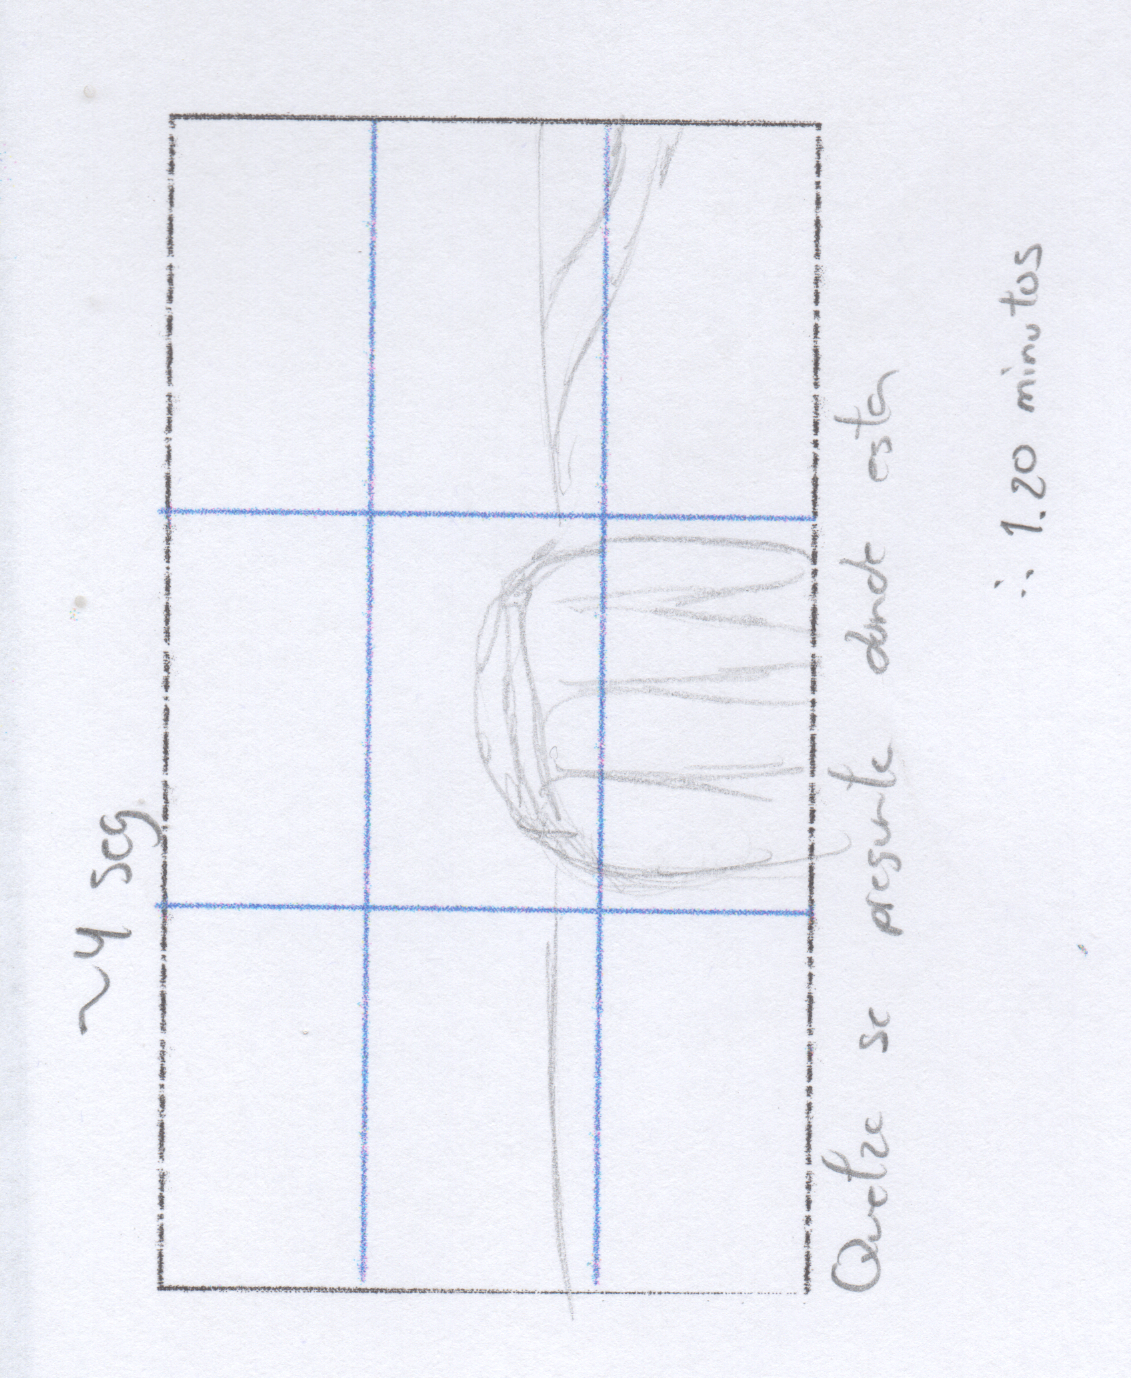 ~4 seg
Quetze se pregunte donde esta
∴ 1.20 minutos